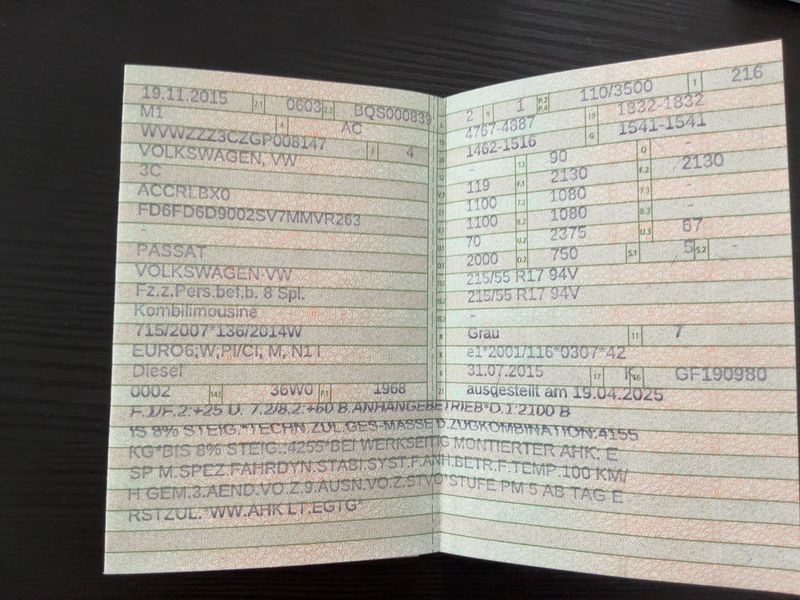 19.11.2015 2.1 0603 2.2 BQS000839
M1 4 AC
WVWZZZ3CZGP008147 3 4
VOLKSWAGEN, VW
3C
ACCRLBX0
FD6FD6D9002SV7MMVR263
-
PASSAT
VOLKSWAGEN-VW
Fz.z.Pers.bef.b. 8 Spl.
Kombilimousine
715/2007*136/2014W
EURO6;W;PI/CI; M, N1 I
Diesel
0002 14.1 36W0 P.1 1968
2 9 1 P.2 P.4 110/3500 T 216
4767-4887 19 1832-1832
1462-1516 G 1541-1541
- 13 90 Q -
119 F.1 2130 F.2 2130
1100 7.2 1080 7.3 -
1100 8.2 1080 8.3 -
70 U.2 2375 U.3 67
2000 O.2 750 S.1 5 S.2 -
215/55 R17 94V
215/55 R17 94V
-
Grau 11 7
e1*2001/116*0307*42
31.07.2015 17 K 16 GF190980
ausgestellt am 19.04.2025
F.1/F.2:+25 U. 7.2/8.2:+60 B.ANHÄNGEBETRIEB*D.1:2100 B
IS 8% STEIG.*TECHN.ZUL.GES-MASSE D.ZUGKOMBINATION:4155
KG*BIS 8% STEIG.:4255*BEI WERKSEITIG MONTIERTER AHK: E
SP M.SPEZ.FAHRDYN.STABI.SYST.F.ANH.BETR.F.TEMP.100 KM/
H GEM.3.AEND.VO.Z.9.AUSN.VO.Z.STVO*STUFE PM 5 AB TAG E
RSTZUL.*WW.AHK LT.EGTG*